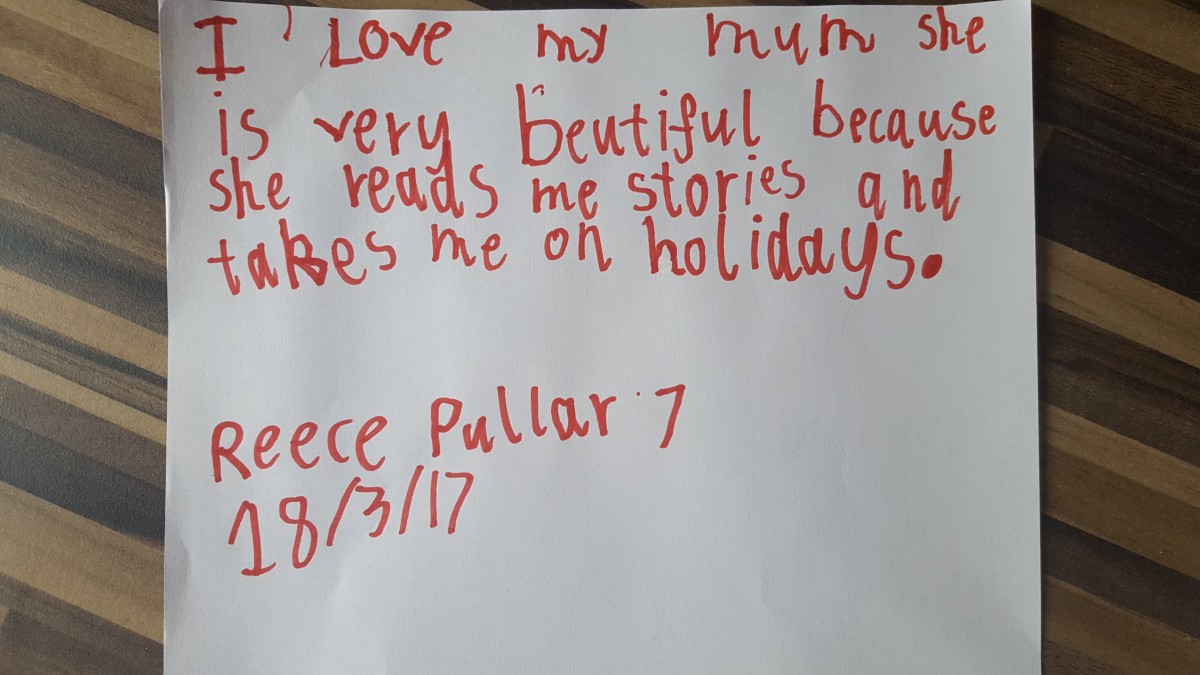 I Love my mum she
is very beutiful because
she reads me stories and
takes me on holidays.
Reece Pullar 7
18/3/17